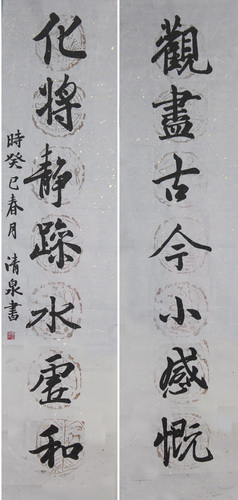 觀盡古今小感慨
化將靜跡水雲和
時癸巳春月清泉書